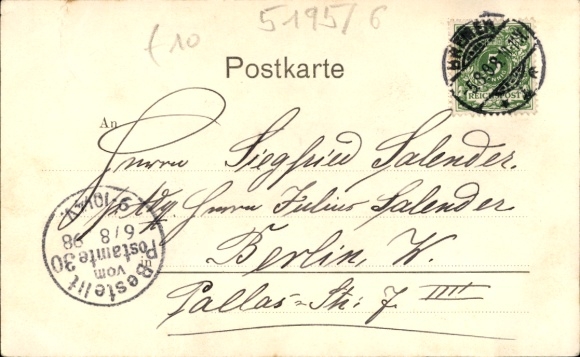 f 10
5195/6
Postkarte
BREMEN
5.8.98
5
REICHSPOST
An
Herrn Siegfried Salender.
p. Adr. Herrn Julius Salender
in
Berlin, W.
Pallas-Str: 7 IIII
Bestellt
vom
Postamte 30
6/8
98